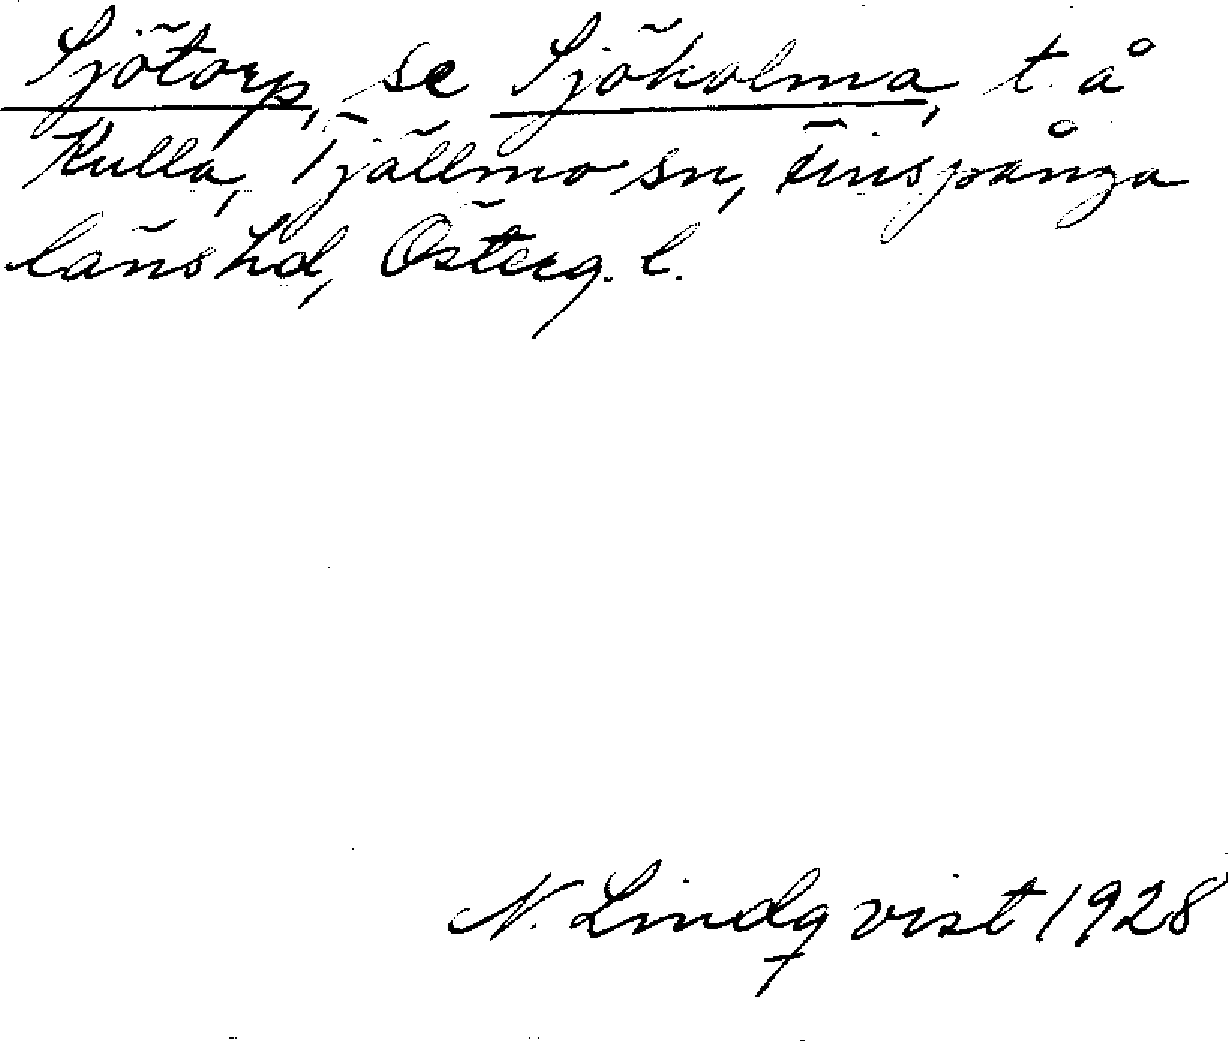 Sjötorp, se Sjökolma, t. å
Kulla, Tjällmo sn, Finspånga
läns hd, Österg. l.
N. Lindqvist 1928